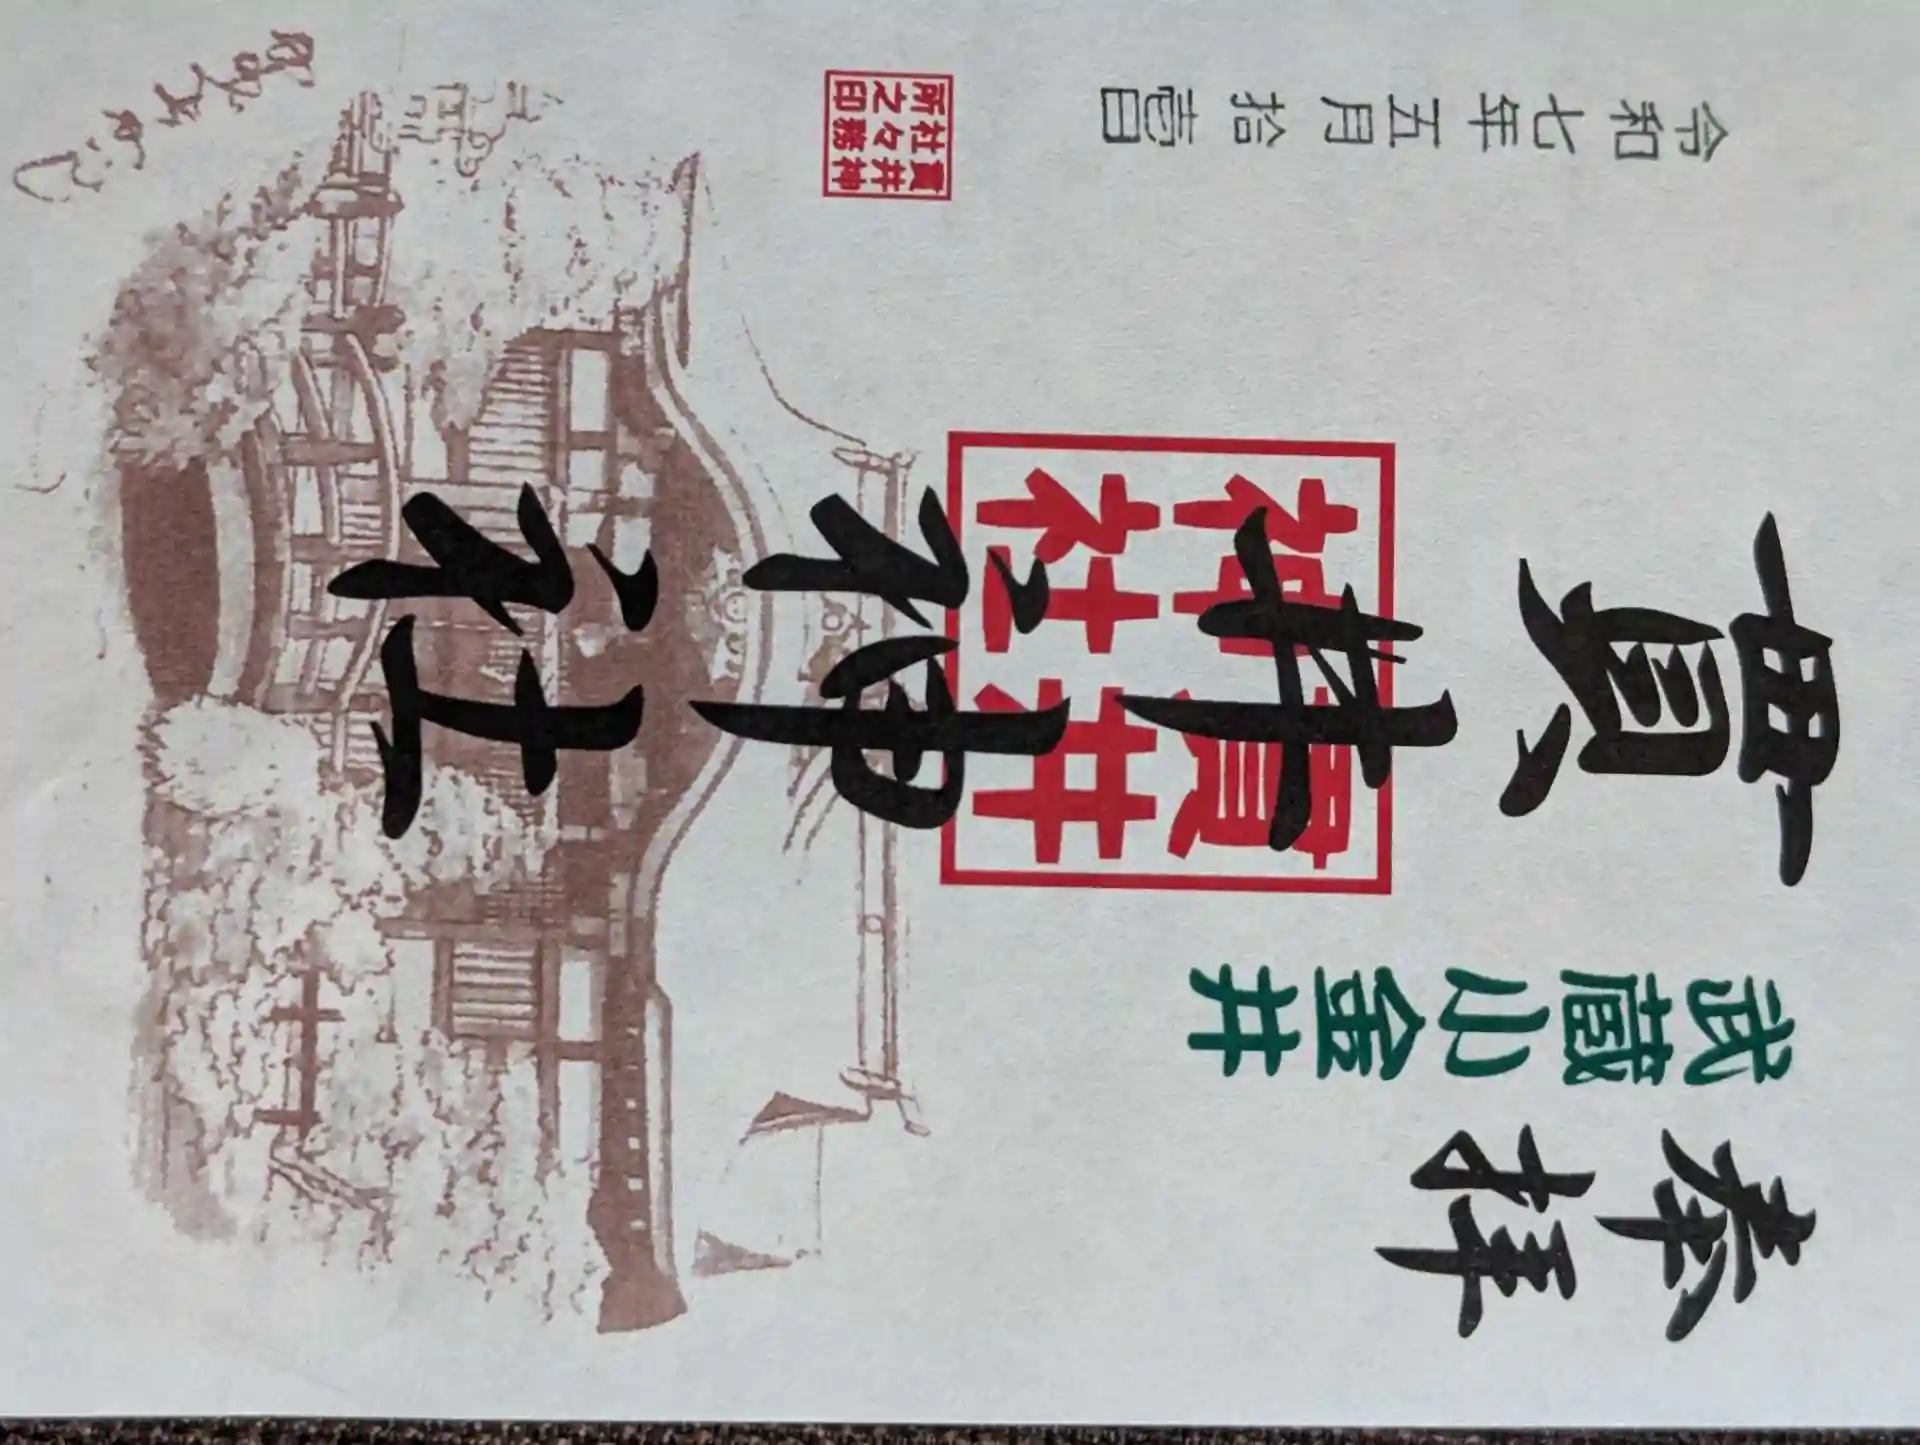 奉拝
武蔵小金井
貫井神社
貫井神社
令和七年五月拾壹日
貫井神社々務所之印